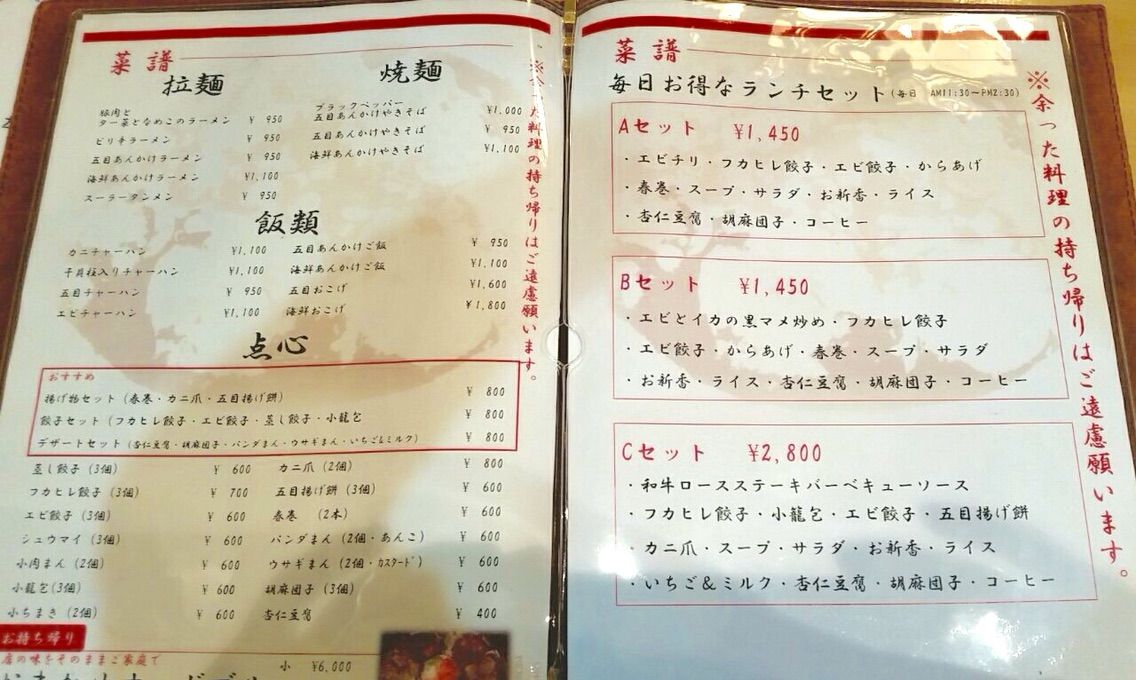 菜譜
拉麺
豚肉と
ター菜となめこのラーメン ¥ 950
ピリ辛ラーメン ¥ 950
五目あんかけラーメン ¥ 950
海鮮あんかけラーメン ¥1,100
スーラータンメン ¥ 950
焼麺
ブラックペッパー
五目あんかけやきそば ¥1,000
五目あんかけやきそば ¥ 950
海鮮あんかけやきそば ¥1,100
飯類
カニチャーハン ¥1,100
干貝柱入りチャーハン ¥1,100
五目チャーハン ¥ 950
エビチャーハン ¥1,100
五目あんかけご飯 ¥ 950
海鮮あんかけご飯 ¥1,100
五目おこげ ¥1,600
海鮮おこげ ¥1,800
点心
おすすめ
揚げ物セット (春巻・カニ爪・五目揚げ餅) ¥ 800
餃子セット (フカヒレ餃子・エビ餃子・蒸し餃子・小龍包 ¥ 800
デザートセット (杏仁豆腐・胡麻団子・パンダまん・ウサギまん・いちご&ミルク) ¥ 800
蒸し餃子 (3個) ¥ 600
フカヒレ餃子 (3個) ¥ 700
エビ餃子 (3個) ¥ 600
シュウマイ (3個) ¥ 600
小肉まん (2個) ¥ 600
小龍包(3個) ¥ 600
小ちまき (2個) ¥ 600
カニ爪 (2個) ¥ 800
五目揚げ餅 (3個) ¥ 600
春巻 (2本) ¥ 600
パンダまん (2個・あんこ) ¥ 600
ウサギまん (2個・カスタード) ¥ 600
胡麻団子 (3個) ¥ 600
杏仁豆腐 ¥ 400
お持ち帰り
店の味をそのままご家庭で
小 ¥6,000
※余った料理の持ち帰りはご遠慮願います。
菜譜
毎日お得なランチセット (毎日 AM11:30〜PM2:30)
Aセット ¥1,450
・エビチリ・フカヒレ餃子・エビ餃子・からあげ
・春巻・スープ・サラダ・お新香・ライス
・杏仁豆腐・胡麻団子・コーヒー
Bセット ¥1,450
・エビとイカの黒マメ炒め・フカヒレ餃子
・エビ餃子・からあげ・春巻・スープ・サラダ
・お新香・ライス・杏仁豆腐・胡麻団子・コーヒー
Cセット ¥2,800
・和牛ロースステーキバーベキューソース
・フカヒレ餃子・小龍包・エビ餃子・五目揚げ餅
・カニ爪・スープ・サラダ・お新香・ライス
・いちご&ミルク・杏仁豆腐・胡麻団子・コーヒー
※余った料理の持ち帰りはご遠慮願います。